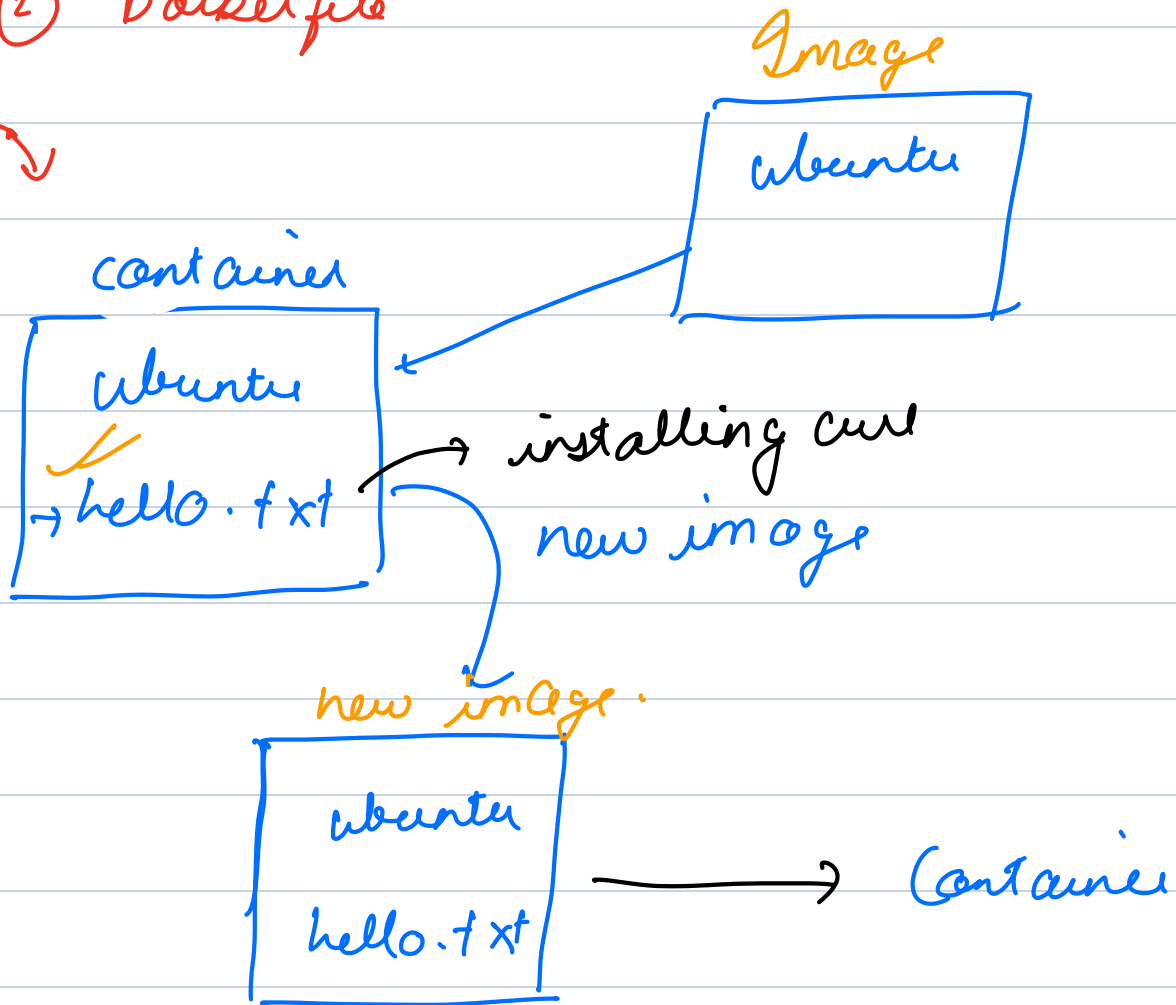 ② Dockerfile
Image
ubuntu
container
ubuntu
hello.txt
installing curl
new image
new image.
ubuntu
hello.txt
Container